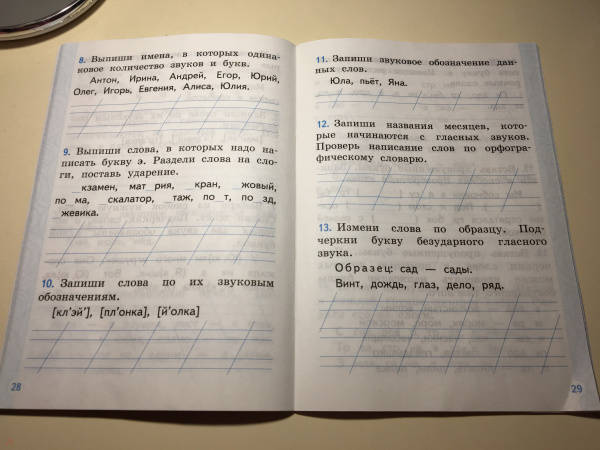 8. Выпиши имена, в которых одина-
ковое количество звуков и букв.
Антон, Ирина, Андрей, Егор, Юрий,
Олег, Игорь, Евгения, Алиса, Юлия.
9. Выпиши слова, в которых надо на-
писать букву э. Раздели слова на сло-
ги, поставь ударение.
_кзамен, мат_рия, _кран, _жовый,
по_ма, _скалатор, _таж, по_т, по_зд,
_жевика.
10. Запиши слова по их звуковым
обозначениям.
[кл'эй'], [пл'онка], [й'олка]
28
11. Запиши звуковое обозначение дан-
ных слов.
Юла, пьёт, Яна.
12. Запиши названия месяцев, кото-
рые начинаются с гласных звуков.
Проверь написание слов по орфогра-
фическому словарю.
13. Измени слова по образцу. Под-
черкни букву безударного гласного
звука.
Образец: сад — сады.
Винт, дождь, глаз, дело, ряд.
29